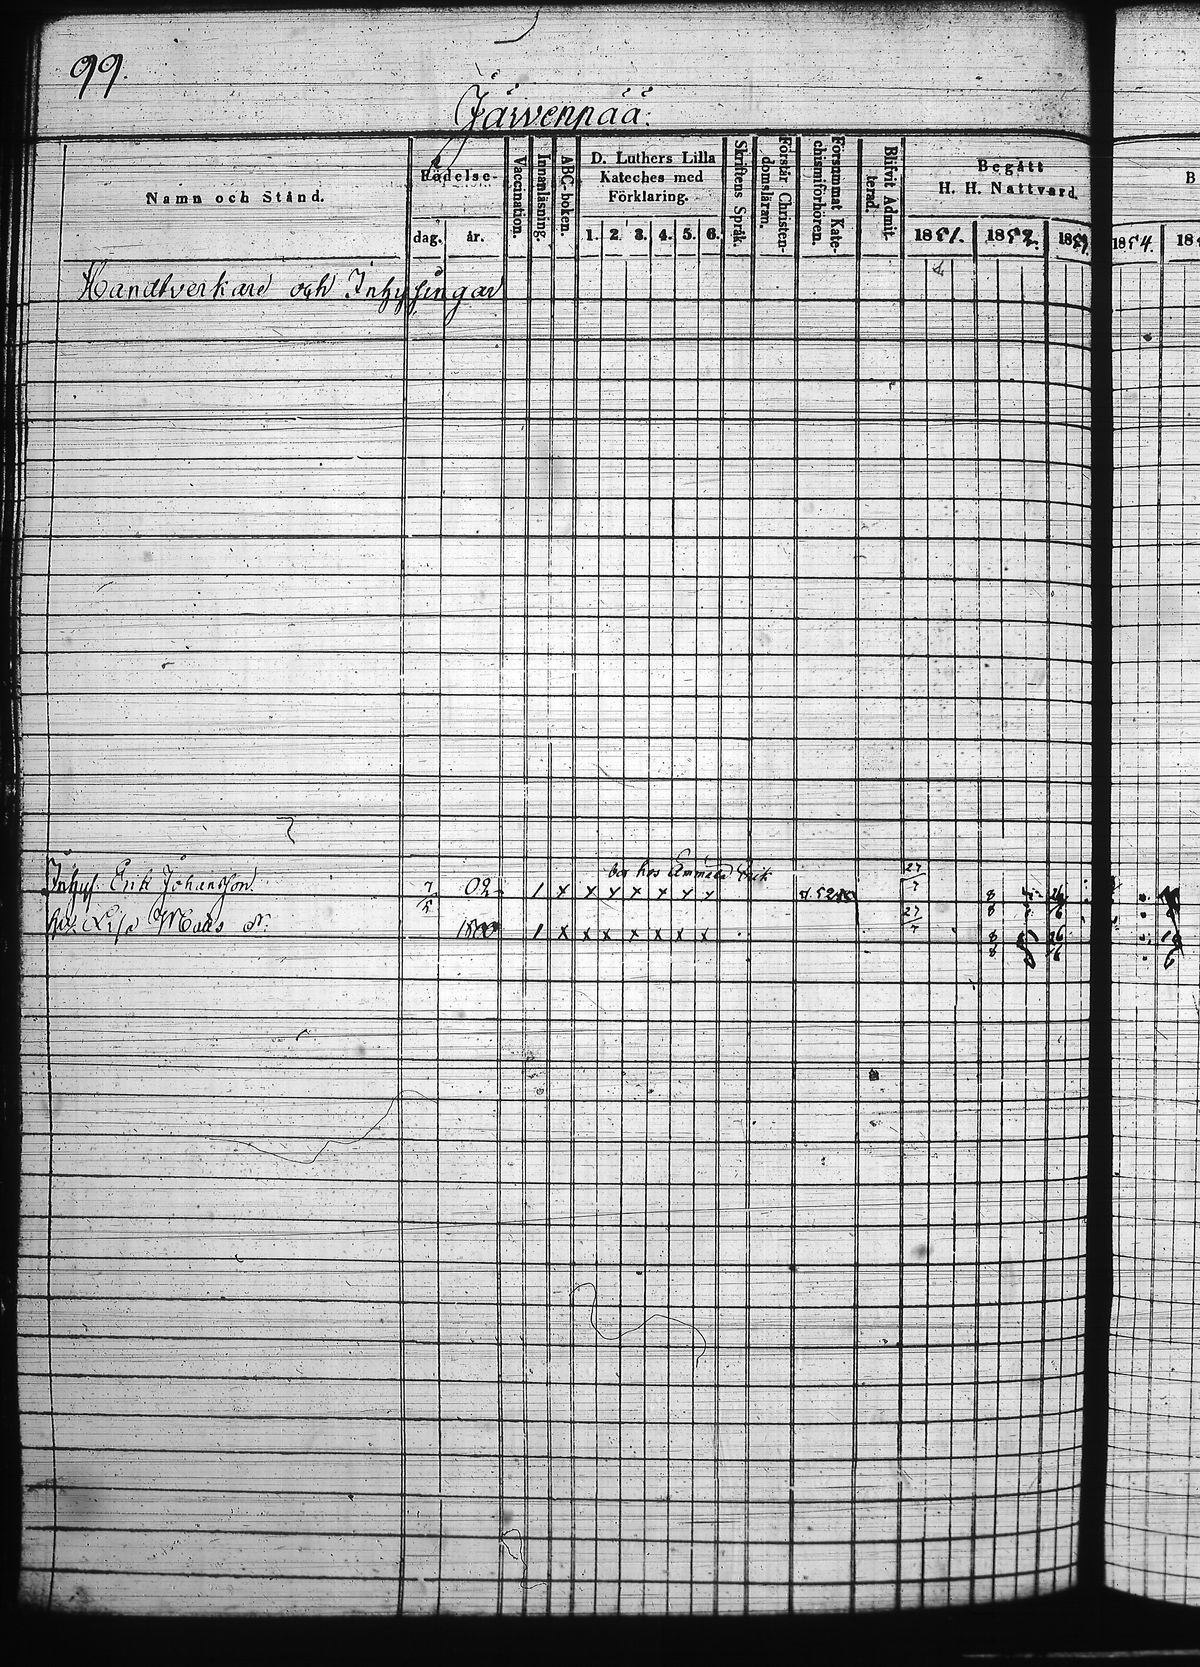 99.
Järvenpää.
Namn och Stånd.
Födelse-
dag.
år.
Vaccination.
Innanläsning.
ABC-boken.
D. Luthers Lilla
Kateches med
Förklaring.
1. 2. 3. 4. 5. 6.
Skriftens Språk.
Förstår Christen-
domsläran.
Försummat Kate-
chismiförhören.
Blifvit Admit-
terad.
Begått
H. H. Nattvard.
1851. 1852. 1853.
1854. 18
B
Handtverkare och Inhysingar
bor hos Erik
Inhys. Erik Johansson 7/5 02 1 x x x x x x x 27/7 8 26
Lisa Mats dr. 1800 1 x x x x x x x 27/7 8 26